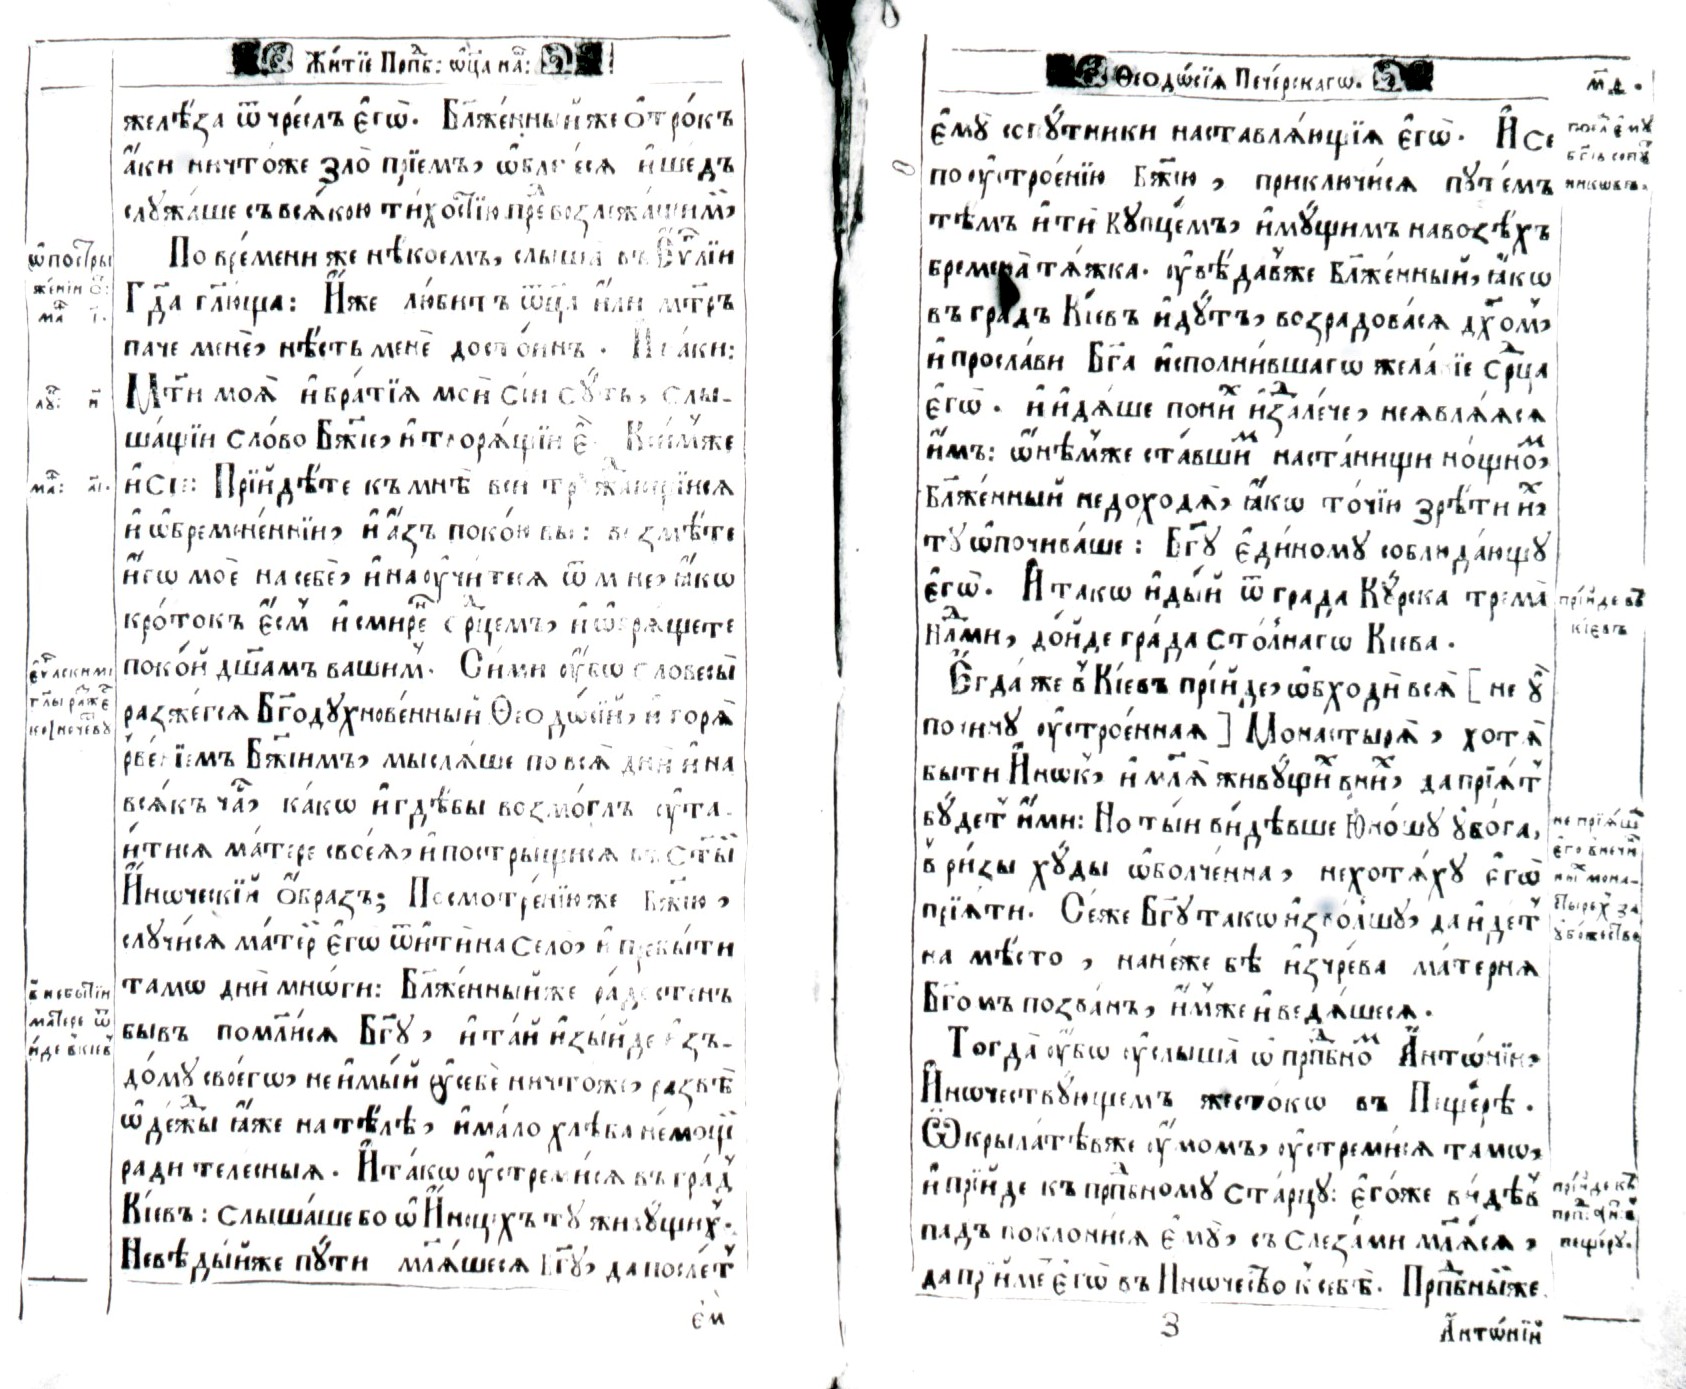 Житїе Прпⷣб: ѿц҃а на́ⷲ:
желѣ́за ѿ чре́слъ є҆гѡ̀. Бл҃же́нный же о҆́трокъ
а҆́ки ничто́же зло̀ прїе́мъ, ѡ҆бле́чеся и҆ше́дъ
слꙋжа́ше съ вся́кою ти́хостїю пре́ⷣ возлежа́щимъ,
По вре́мени же нѣ́коемъ, слы́ша въ Є҆ѵⷢ҇лїи
Гдⷭ҇а гл҃юща: И҆́же лю́битъ ѻ҆тц҃а̀ и҆лѝ мт҃рь
паче менѐ, нѣ́сть менѐ досто́инъ. И҆ па́ки:
Мт҃и моѧ̀ и҆ бра́тїя моѝ сі́и сꙋ́ть, слы-
шащїи сло́во Бж҃їе, и҆ творя́щїи є҆̀. Къ ни́мже
и҆ сїѐ: Прїйдѣ́те къ мнѣ̀ вси трꙋжда́ющїися
и҆ ѡ҆бремене́ннїи, и҆ а҆́зъ поко́ю вы̀: возмѣ́те
и҆́гѡ моѐ на себѐ, и҆ наꙋчи́теся ѿ менѐ, ꙗ҆́кѡ
кро́токъ є҆́смь и҆ смире́нъ срⷣцемъ, и҆ ѡ҆бря́щете
поко́й дш҃амъ ва́шимъ. Си́ми ᲂу҆́бѡ словесы̀
разже́гся Бг҃одꙋхнове́нный Ѳеодѡ́сїй, и҆ горя̀
рве́нїемъ Бж҃їимъ, мысля́ше по вся̀ дни̑ и҆ на
вся́къ ча́ⷭ, ка́кѡ и҆ гдѣ́бы возмо́глъ ᲂу҆та-
и́тися ма́тере своея̀, и҆ постри́щися въ ст҃ы́й
И҆́ноческїй о҆́бразъ; По смотре́нїю же Бж҃їю,
слꙋчи́ся ма́тери є҆гѡ̀ ѿитѝ на село̀, и҆ пребы́ти
та́мѡ дни̑ мнѡ́ги: Бл҃же́нный же ра́достенъ
бывъ помоли́ся Бг҃ꙋ, и҆ та́й и҆зы́йде и҆зъ-
до́мꙋ своегѡ̀, не и҆мы́й ᲂу҆ себѐ ничто́же, ра́звѣ
ѡ҆де́жⷣы ꙗ҆́же на тѣ́лѣ, и҆ ма́ло хлѣ́ба не́мощи
ради теле́сныя. И҆ та́кѡ ᲂу҆стреми́ся въ гра́дъ
Кі́евъ: слы́шаше бо ѡ҆ И҆́ноцѣхъ тꙋ живꙋ́щихъ.
Не вѣ́дый же пꙋтѝ мл҃я́шеся Бг҃ꙋ, да по́слетъ
є҆мꙋ̀
ѡ҆ постри-
же́нїи ѻ҆:
маⷴ҇ і҃.
лꙋⷦ: и҃
маⷴ҇: а҃і.
в небы́тїи
ма́тере ѿ-
и́де в кі́евъ
Ѳеодѡ́сїя Пече́рскагѡ.
м҃д.
є҆мꙋ̀ сопꙋ́тники наставля́ющїя є҆гѡ̀. И҆ се
по ᲂу҆строе́нїю Бж҃їю, приключи́ся пꙋте́мъ
тѣ́мъ и҆тѝ кꙋпце́мъ, и҆мꙋ́щимъ на возѣ́хъ
бремена̀ тя́жка. ᲂу҆вѣ́давже Бл҃же́нный, ꙗ҆́кѡ
въ гра́дъ Кі́евъ и҆дꙋ́тъ, возра́довася дх҃омъ,
и҆ просла́ви Бг҃а и҆спо́лнившагѡ жела́нїе срⷣца
є҆гѡ̀. и҆ и҆дя́ше по ни́хъ и҆здале́че, не явля́яся
и҆́мъ: ѡ҆нѣ́мже ста́вшимъ на ста́нищи но́щномъ,
Бл҃же́нный не доходя̀, ꙗ҆́кѡ то́чїю зрѣ́ти и́хъ,
тꙋ ѡ҆почива́ше: Бг҃ꙋ є҆ди́номꙋ соблюда́ющꙋ
є҆гѡ̀. И҆ та́кѡ и҆ды́й ѿ гра́да Кꙋ́рска трема̀
нⷣлями, до́йде гра́да сто́лнагѡ Кі́ева.
Є҆гда́ же в Кі́евъ прїи́де, ѡ҆бходѝ вся̀ [ не ᲂу҆
по чинꙋ ᲂу҆строе́нная ] Монастыря̀, хотя̀
бы́ти И҆́нокъ, и҆ мл҃я̀ живꙋ́щихъ в ни́хъ, да прїя́тъ
бꙋ́детъ и҆́ми: Но ты́и ви́дѣвше Ю҆́ношꙋ ᲂу҆бо́га,
в ри́зы хꙋ́ды ѡ҆болче́нна, не хотя́хꙋ є҆гѡ̀
прїя́ти. Се́же Бг҃ꙋ та́кѡ и҆зво́лшꙋ, да и҆́детъ
на мѣ́сто, на не́же бѣ̀ и҆зчре́ва ма́терня
Бг҃омъ позва́нъ, и҆́мже и҆ ведя́шеся.
Тогда̀ ᲂу҆́бѡ ᲂу҆слы́ша ѡ҆ прпⷣбномъ А҆нтѡ́нїи,
И҆́ночествꙋющемъ жесто́кѡ въ Пеще́рѣ.
Ѿкрыла́тѣвже ᲂу҆мо́мъ, ᲂу҆стреми́ся та́мѡ,
и҆ прїи́де къ прпⷣбномꙋ ста́рцꙋ: є҆го́же ви́дѣвъ
па́дъ поклони́ся є҆мꙋ̀, съ слеза́ми мл҃я́ся,
да прїи́метъ є҆гѡ̀ въ И҆́ночество к себѣ̀. Прпⷣбный же
А҆нтѡ́нїй
3
прїи́де въ
кі́евъ
не прїя́ша
є҆го̀ в нечи́н-
ныхъ мона-
стыре́хъ за
ᲂу҆бо́жество
прїи́де къ
пеще́рꙋ.